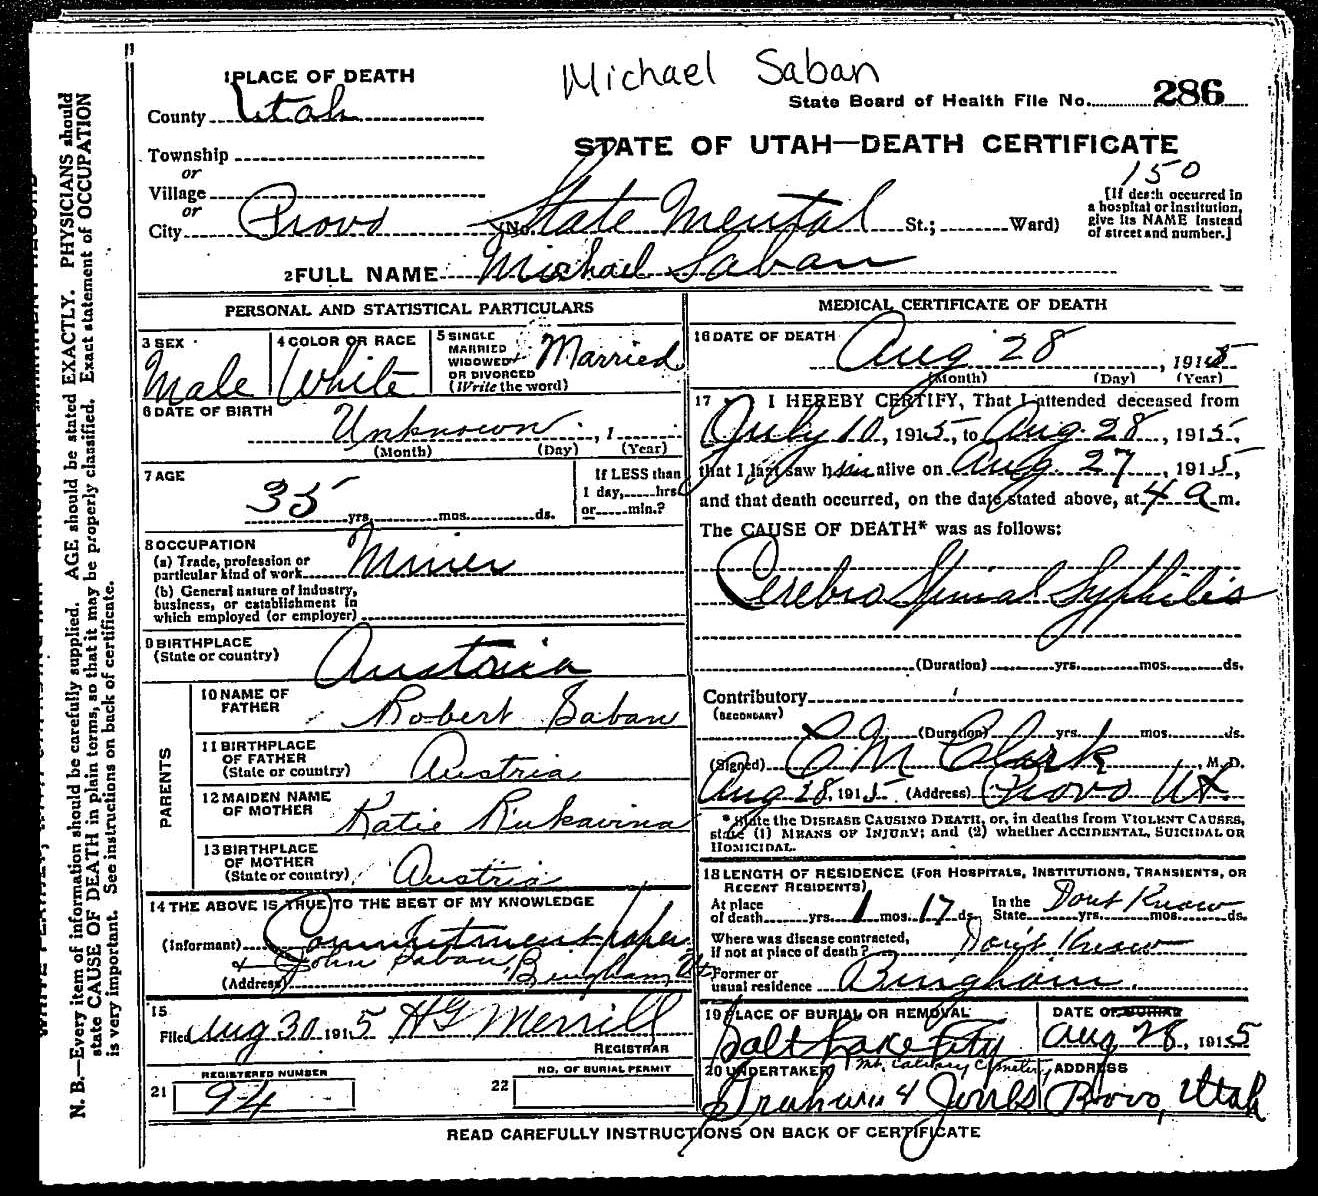 Michael Saban
1 PLACE OF DEATH
State Board of Health File No. 286
County Utah
STATE OF UTAH—DEATH CERTIFICATE
Township
150
or
Village
[If death occurred in
a hospital or institution,
give its NAME instead
of street and number.]
or
City Provo (No. State Mental St.; Ward)
2 FULL NAME Michael Saban
PERSONAL AND STATISTICAL PARTICULARS
3 SEX
Male
4 COLOR OR RACE
White
5 SINGLE
MARRIED
WIDOWED
OR DIVORCED
(Write the word)
Married
6 DATE OF BIRTH
Unknown , 1
(Month) (Day) (Year)
7 AGE
35 yrs. mos. ds.
If LESS than
1 day, hrs
or min.?
8 OCCUPATION
(a) Trade, profession or
particular kind of work Miner
(b) General nature of industry,
business, or establishment in
which employed (or employer)
9 BIRTHPLACE
(State or country) Austria
PARENTS
10 NAME OF
FATHER Robert Saban
11 BIRTHPLACE
OF FATHER
(State or country) Austria
12 MAIDEN NAME
OF MOTHER Katie Rukavina
13 BIRTHPLACE
OF MOTHER
(State or country) Austria
14 THE ABOVE IS TRUE TO THE BEST OF MY KNOWLEDGE
(Informant) Commitment paper
+ John Saban, Bingham Ut
(Address)
15
Filed Aug 30 1915 HG Merrill
REGISTRAR
21 REGISTERED NUMBER
94
22 NO. OF BURIAL PERMIT
MEDICAL CERTIFICATE OF DEATH
16 DATE OF DEATH
Aug 28 , 1915
(Month) (Day) (Year)
17 I HEREBY CERTIFY, That I attended deceased from
July 10, 1915, to Aug. 28, 1915,
that I last saw him alive on Aug. 27, 1915,
and that death occurred, on the date stated above, at 4 a m.
The CAUSE OF DEATH* was as follows:
Cerebro Spinal Syphilis
(Duration) yrs. mos. ds.
Contributory
(SECONDARY)
(Duration) yrs. mos. ds.
(Signed) C M Clark, M. D.
Aug 28, 1915 (Address) Provo Ut.
*State the DISEASE CAUSING DEATH, or, in deaths from VIOLENT CAUSES,
state (1) MEANS OF INJURY; and (2) whether ACCIDENTAL, SUICIDAL OR
HOMICIDAL.
18 LENGTH OF RESIDENCE (FOR HOSPITALS, INSTITUTIONS, TRANSIENTS, OR
RECENT RESIDENTS)
At place
of death yrs. 1 mos. 17 ds.
In the
State Dont Know yrs. mos. ds.
Where was disease contracted,
if not at place of death? Don't Know
Former or
usual residence Bingham.
19 PLACE OF BURIAL OR REMOVAL
Salt Lake City
Mt Calvary Cemetery
DATE OF BURIAL
Aug 28, 1915
20 UNDERTAKER
Graham & Jones
ADDRESS
Provo, Utah
READ CAREFULLY INSTRUCTIONS ON BACK OF CERTIFICATE
N. B.—Every item of information should be carefully supplied. AGE should be stated EXACTLY. PHYSICIANS should
state CAUSE OF DEATH in plain terms, so that it may be properly classified. Exact statement of OCCUPATION
is very important. See instructions on back of certificate.